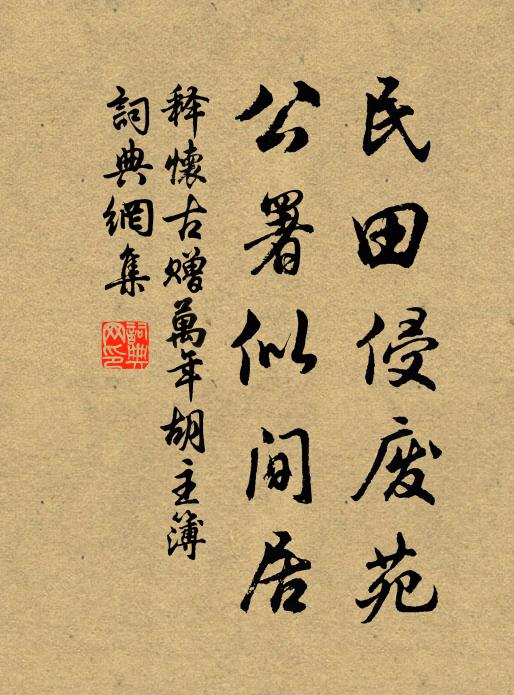 民田侵废苑
公署似间居
释怀古赠萬年胡主簿
詞典網集
詞典网印